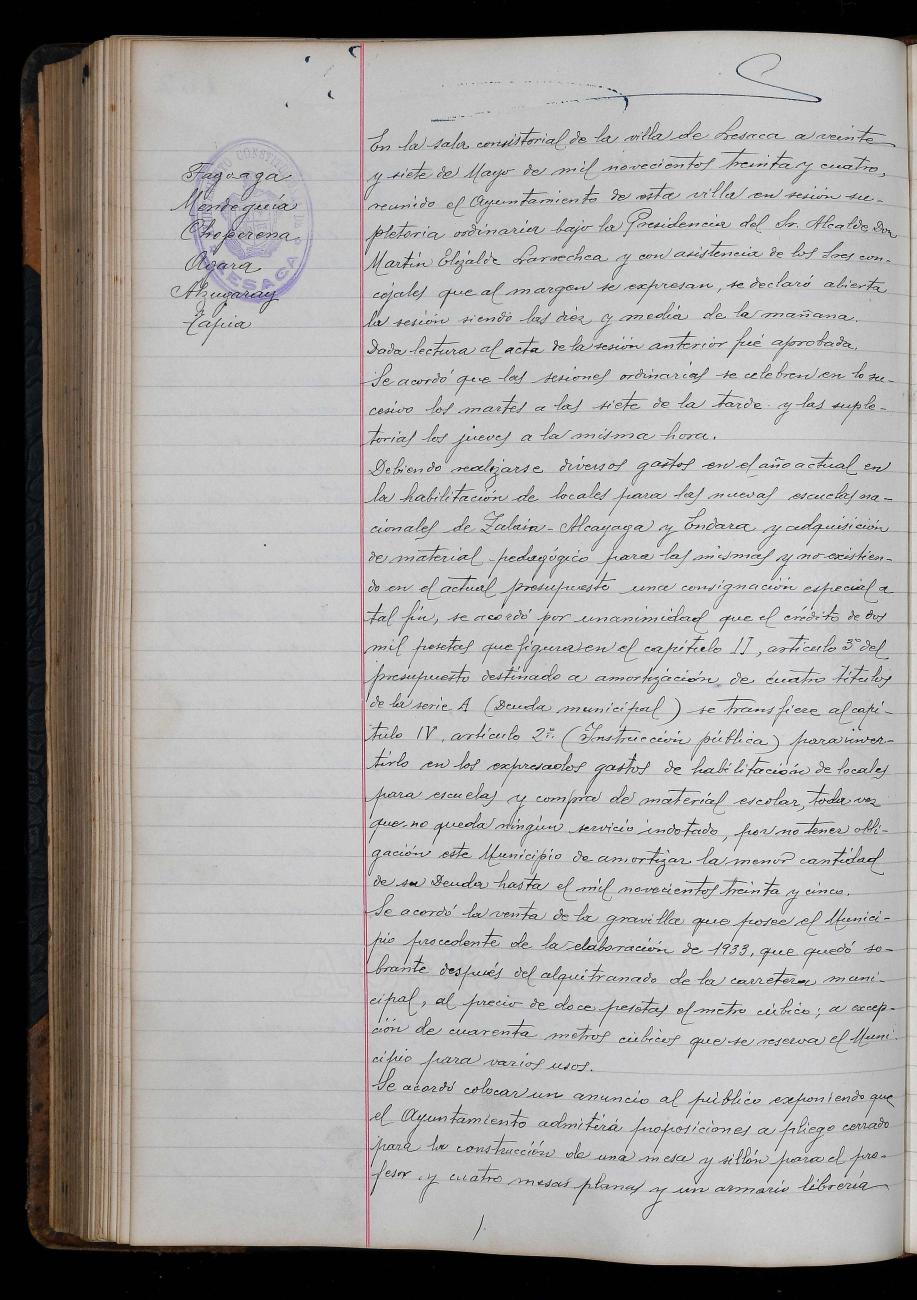 Taguaga
Mendeguía
Choperena
Agara
Alzugaray
Tapia
LESACA
En la sala consistorial de la villa de Lesaca a veinte
y siete de Mayo de mil novecientos treinta y cuatro,
reunido el Ayuntamiento de esta villa en sesión su-
pletoria ordinaria bajo la Presidencia del Sr. Alcalde Don
Martín Elizalde Larrechea y con asistencia de los Sres con-
cejales que al margen se expresan, se declaró abierta
la sesión siendo las diez y media de la mañana.
Dada lectura al acta de la sesión anterior fué aprobada.
Se acordó que las sesiones ordinarias se celebren en lo su-
cesivo los martes a las siete de la tarde y las suple-
torias los jueves a la misma hora.
Debiendo realizarse diversos gastos en el año actual en
la habilitación de locales para las nuevas escuelas na-
cionales de Zalain-Alcayaga y Endara y adquisición
de material pedagógico para las mismas y no existien-
do en el actual presupuesto una consignación especial a
tal fin, se acordó por unanimidad que el crédito de dos
mil pesetas que figura en el capítulo II, artículo 3º del
presupuesto destinado a amortización de cuatro títulos
de la serie A (Deuda municipal) se transfiere al capí-
tulo IV, artículo 2º. (Instrucción pública) para inver-
tirlo en los expresados gastos de habilitación de locales
para escuelas y compra de material escolar, toda vez
que no queda ningún servicio indotado, por no tener obli-
gación este Municipio de amortizar la menor cantidad
de su Deuda hasta el mil novecientos treinta y cinco.
Se acordó la venta de la gravilla que posee el Munici-
pio procedente de la elaboración de 1933, que quedó so-
brante después del alquitranado de la carretera muni-
cipal, al precio de doce pesetas el metro cúbico; a excep-
ción de cuarenta metros cúbicos que se reserva el Muni-
cipio para varios usos.
Se acordó colocar un anuncio al público exponiendo que
el Ayuntamiento admitirá proposiciones a pliego cerrado
para la construcción de una mesa y sillón para el pro-
fesor, y cuatro mesas planas y un armario librería